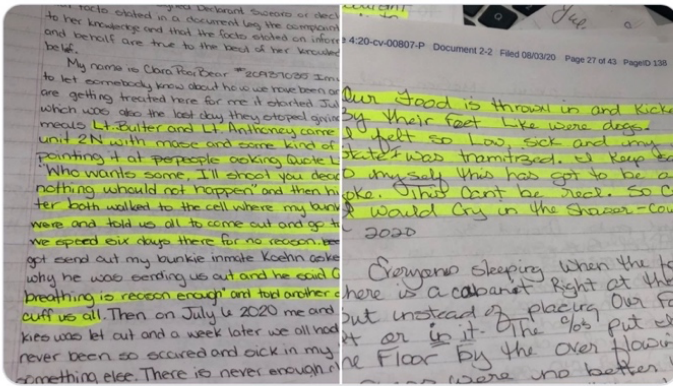 facto stated in a document leg the complaint
to her knowledge and that the facto stated on inform
and behalf are true to the best of her knowled
belief.
My name is Clara PoorBear
to let somebody know about how we have been
are getting treated here for me it started Jul
which was also the last day they stoped givin
meals Lt. Butler and Lt. Anthoney came
unit 2N with mase and some kind of
pointing it at perpeople asking Quote
"Who wants some, I'll shoot you dead
nothing whould not happen" and then
ter both walked to the cell where my bunk
were and told us all to come out and go
we speed six days there for no reason.
got send out my bunkie inmate Koehn aske
why he was sending us out and he said
breathing is reason enough" and told another
cuff us all. Then on July 6 2020 me and
kies was let out and a week later we all had
never been so scared and sick in my
something else. There is never enough
4:20-cv-00807-P Document 2-2 Filed 08/03/20 Page 27 of 43 PageID 138
Our Food is thrown in and Kicke
by their feet Like were dogs.
I felt so Low, sick and my
state I was tramitized. I Keep
myself this has got to be a
oke. This cant be real. So
I would Cry in the Shower-Cou
2020
Everyone sleeping when the
here is a cabanet Right at the
but instead of placing Our
or in it. The %s put
he Floor by the over flowin
were no better